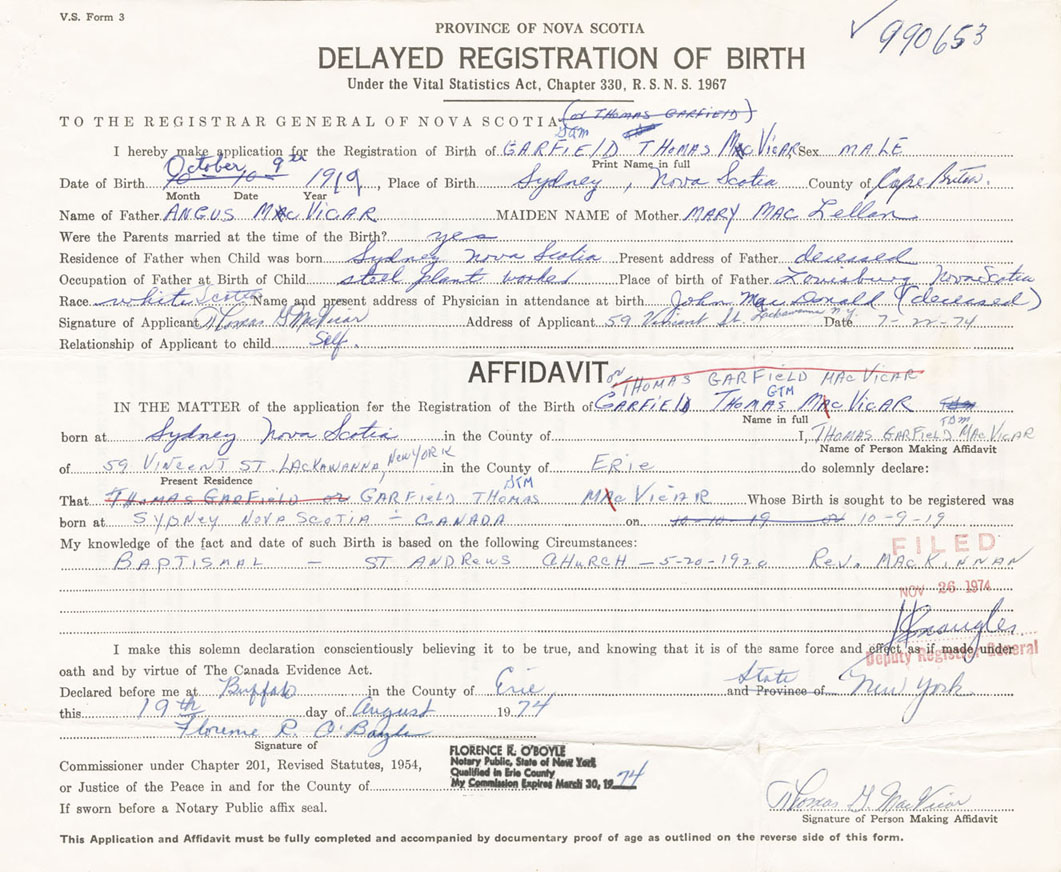 V.S. Form 3
✓ 990653
PROVINCE OF NOVA SCOTIA
DELAYED REGISTRATION OF BIRTH
Under the Vital Statistics Act, Chapter 330, R.S.N.S. 1967
(or THOMAS GARFIELD)
TO THE REGISTRAR GENERAL OF NOVA SCOTIA
I hereby make application for the Registration of Birth of GARFIELD THOMAS MacVICAR Sex MALE
Print Name in full
October 9th
Date of Birth 10 10 9 1919, Place of Birth Sydney, Nova Scotia County of Cape Breton.
Month Date Year
Name of Father ANGUS MacVICAR MAIDEN NAME of Mother MARY MAC Lellan
Were the Parents married at the time of the Birth? yes
Residence of Father when Child was born Sydney Nova Scotia Present address of Father deceased
Occupation of Father at Birth of Child steel plant worker Place of birth of Father Louisburg Nova Scotia
Race white Scotch Name and present address of Physician in attendance at birth John MacDonald (deceased)
Signature of Applicant Thomas G MacVicar Address of Applicant 59 Vincent St. Lackawanna N.Y. Date 7-22-74
Relationship of Applicant to child Self.
AFFIDAVIT
or THOMAS GARFIELD MAC VICAR
GTM
IN THE MATTER of the application for the Registration of the Birth of GARFIELD THOMAS MacVICAR
Name in full
born at Sydney Nova Scotia in the County of I, THOMAS GARFIELD MAC VICAR
Name of Person Making Affidavit
of 59 VINCENT ST. LACKAWANNA, NEW YORK in the County of ERIE do solemnly declare:
Present Residence
That THOMAS GARFIELD or GARFIELD THOMAS MacVICAR Whose Birth is sought to be registered was
born at SYDNEY NOVA SCOTIA - CANADA on 10-10-19 or 10-9-19
My knowledge of the fact and date of such Birth is based on the following Circumstances:
BAPTISMAL - ST ANDREWS CHURCH - 5-20-1920 REV. MACKINNAN
FILED
NOV 26 1974
I make this solemn declaration conscientiously believing it to be true, and knowing that it is of the same force and effect as if made under
Deputy Registrar General
oath and by virtue of The Canada Evidence Act.
State
Declared before me at Buffalo in the County of Erie and Province of New York
this 19th day of August 1974
Florence R. O'Boyle
Signature of
Commissioner under Chapter 201, Revised Statutes, 1954,
or Justice of the Peace in and for the County of
If sworn before a Notary Public affix seal.
FLORENCE R. O'BOYLE
Notary Public, State of New York
Qualified in Erie County
My Commission Expires March 30, 1974
Thomas G. MacVicar
Signature of Person Making Affidavit
This Application and Affidavit must be fully completed and accompanied by documentary proof of age as outlined on the reverse side of this form.